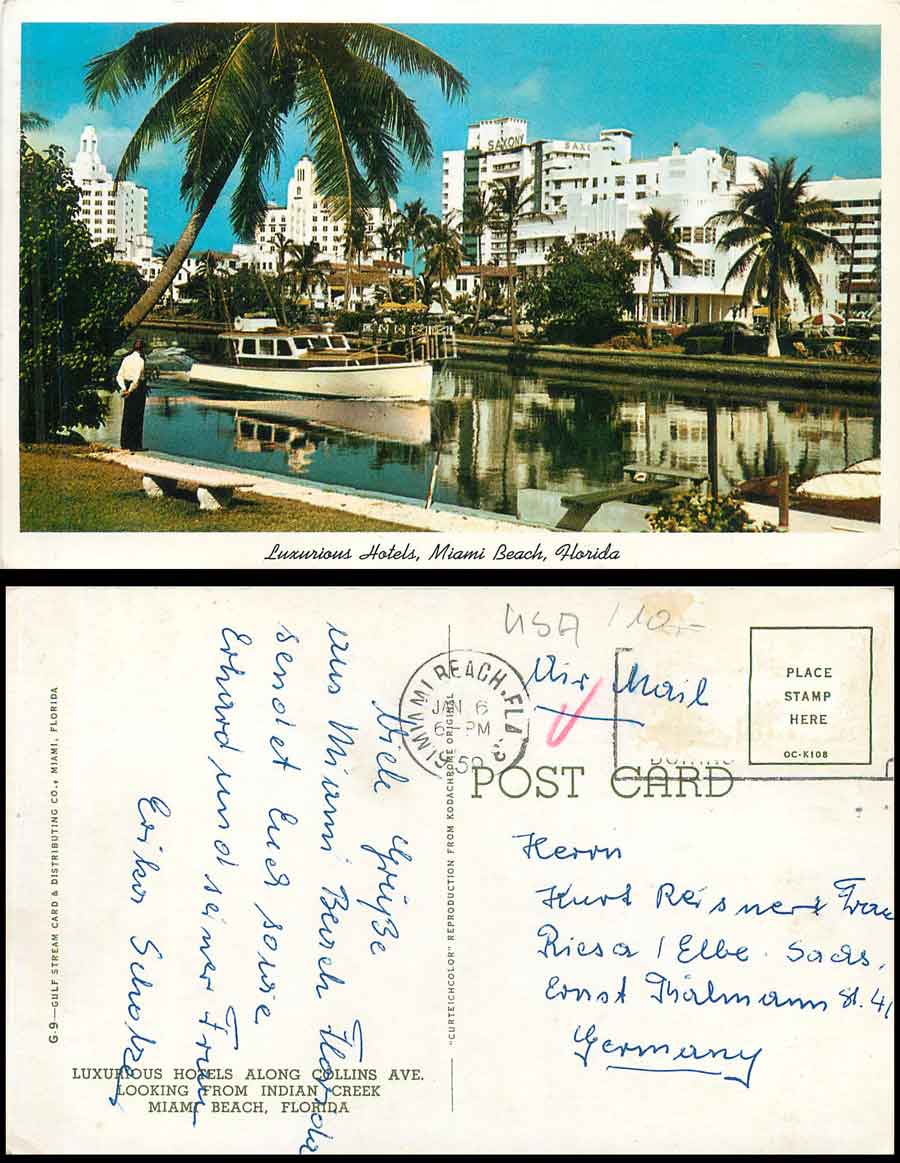 SAXONY
SAXO
Luxurious Hotels, Miami Beach, Florida
USA 110.-
Air Mail
MIAMI BEACH, FLA.
JAN 6
6 PM
1959
PLACE
STAMP
HERE
OC-K108
POST CARD
G-9—GULF STREAM CARD & DISTRIBUTING CO., MIAMI, FLORIDA
"CURTEICHCOLOR" REPRODUCTION FROM KODACHROME ORIGINAL
Viele Grüße
aus Miami Beach Florida
sendet Euch sowie
Erhard und seiner Frau
Erika Scholze
Herrn
Kurt Reisner & Frau
Riesa / Elbe. Sachs.
Ernst Thälmann St. 4
Germany
LUXURIOUS HOTELS ALONG COLLINS AVE.
LOOKING FROM INDIAN CREEK
MIAMI BEACH, FLORIDA